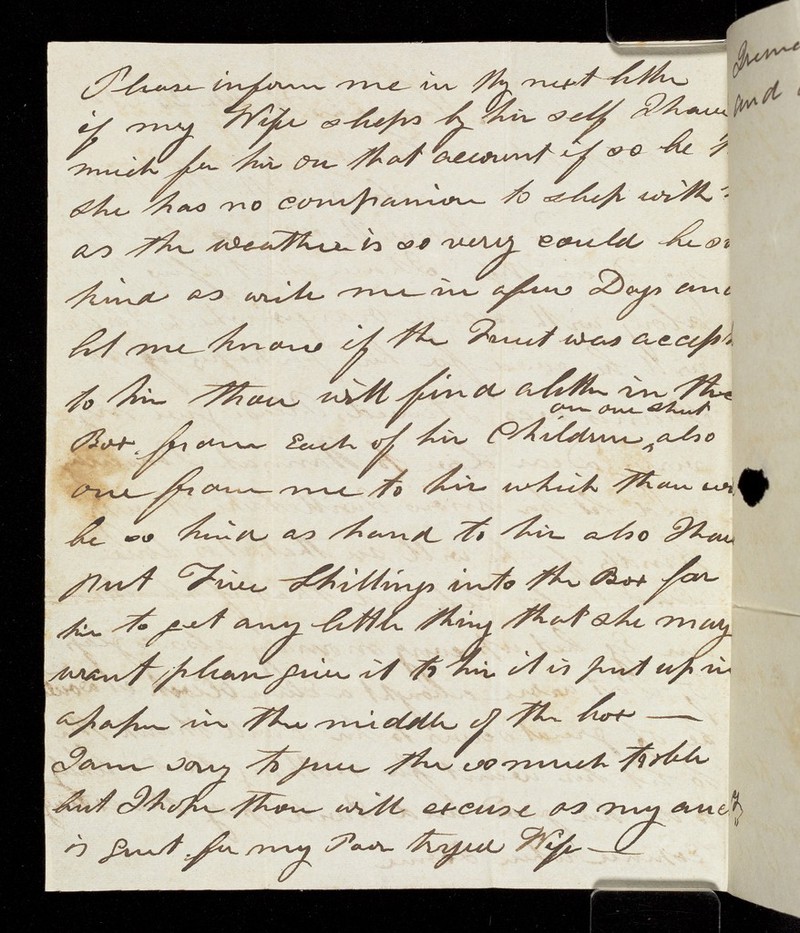 Please inform me in thy next letter
if my Wife sleeps by hir self I have
much for hir on that account if so be
she has no companion to sleep with
as the weather is so very could be so
kind as write me in a few Days and
let me know if the Fruit was accept
to hir thou will find a letter in the
on one sheet
Box from Each of hir Children ^ also
one from me to hir which thou
be so kind as hand to hir also I have
put Five Shillings into the Box for
hir to get any little thing that she may
want please give it to hir it is put up in
a paper in the middle of the box —
I am sorry to give the so much troble
but I hope thou will excuse as my
is great for my Poor tryed Wife —
and